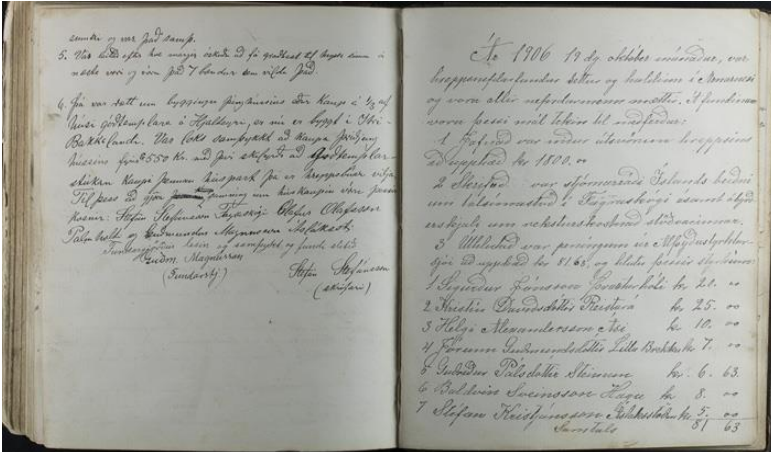 sömdu og var það samþ.
5. Var leitað eftir hve margir óskuðu að fá graðhest til brúks sinna á
næsta vori og voru það 7 bændur sem vildu það.
6. Þá var rætt um byggingu þinghússins eða kaup á 1/3 af
húsi goodtemplara á Hjalteyri, er nú er byggt í Ytri-
Bakkalandi. Var loks samþykkt að kaupa þriðjung
hússins fyrir 550 Kr. með því skilyrði að Goodtemplar-
stúkan kaupi þennan húspart þá er hreppsbúar vilja
Til þess að gjöra samning um húskaupin voru þessir
kosnir: Stefán Stefánsson Fagraskógi Ólafur Ólafsson
Pálmholti og Guðmundur Magnússon Ásláksst:
Fundargjörðin lesin og samþykt og fundi slitið
Guðm. Magnússon
(Fundarstj:)
Stefán Stefánsson
(skrifari)
Ár 1906 19 dg. október mánaðar, var
hreppsnefndarfundur settur og haldinn í Arnarnesi
og voru allir nefndarmenn mættir. Á fundinum
voru þessi mál tekin til meðferðar:
1 Jafnað var niður útsvörum hreppsins
að upphæð kr 1800. 00
2 Skrifað var stjórnarráði Íslands beiðni
um talsímastöð í Fagraskógi ásamt ábyrgð
arskjali um reksturskostnað stöðvarinnar.
3 Úthlutað var peningum úr Alþýðustyrktar-
sjóði að upphæð kr 81.63, og hlutu þessir styrkinn:
1 Sigurður Jónsson kr 20. 00
2 Kristín Davíðsdóttir Reistará kr. 25. 00
3 Helgi Alexandersson Ási kr 10. 00
4 Jórunn Guðmundsdóttir Litlu Brekku kr 7. 00
5 Guðríður Pálsdóttir kr. 6. 63.
6 Baldvin Sveinsson Hagu kr 8. 00
7 Stefán Kristjánsson Ásláksstöðum kr 5. 00
Samtals 81 63